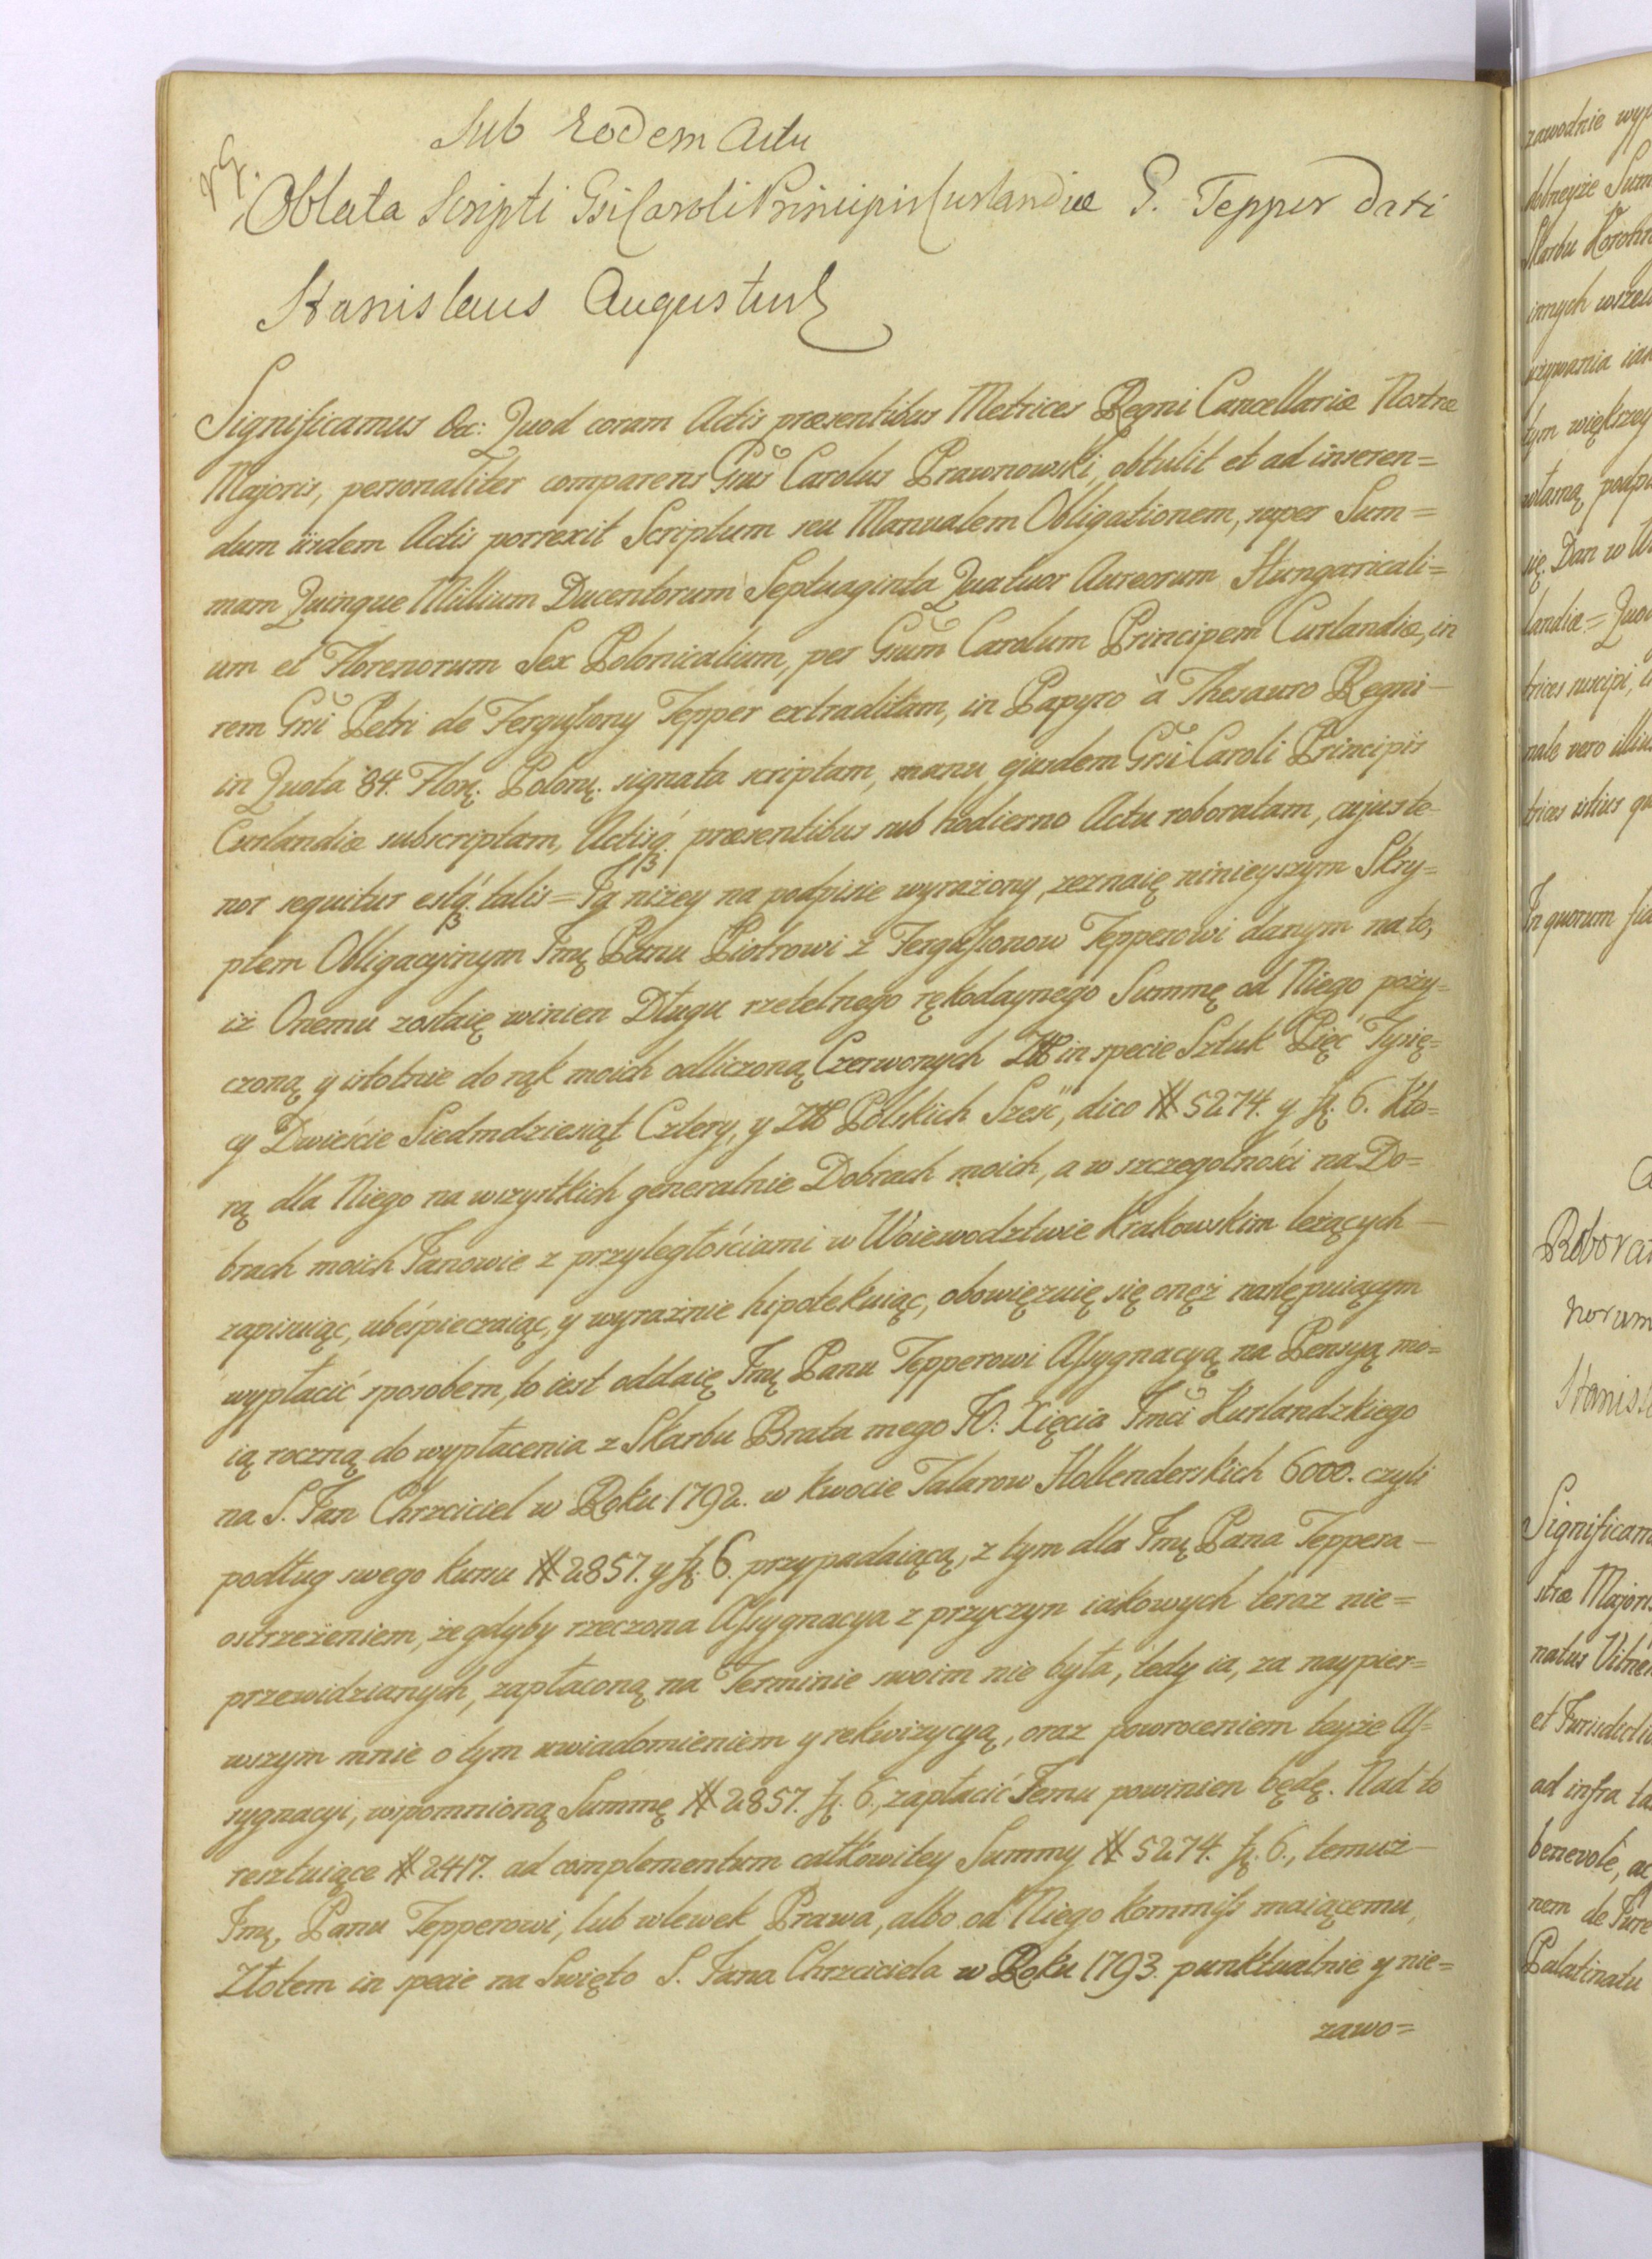 Sub eodem Actu
Oblata Scripti Gsi Caroli Principis Curlandiæ G. Tepper dati
Stanislaus Augustus
Significamus &c: Quod coram Actis præsentibus Metrices Regni Cancellariæ Nostræ
Majoris, personaliter comparens Grūs Carolus Prawnowski, obtulit et ad inseren=
dum iisdem Actis porrexit Scriptum seu Manualem Obligationem, super Sum=
mam Quinque Millium Ducentorum Septuaginta Quatuor Aureorum Hungaricali=
um et Florenorum Sex Polonicalium, per Grūm Carolum Principem Curlandiæ, in
rem Grīi Petri de Fergussony Tepper extraditam, in Papyro à Thesauro Regni —
in Quota 84. Flor. Polon. signata scriptam, manu ejusdem Grīi Caroli Principis
Curlandiæ subscriptam, Actisq. præsentibus sub hodierno Actu roboratam, cujus te=
nor sequitur estq. talis = Ja niżey na podpisie wyrażony, zeznaię ninieyszym Skry=
ptem Obligacyinym Jmę Panu Piotrowi z Fergussonow Tepperowi danym na to,
iż Onemu zostaię winien Długu rzetelnego rękodaynego Summę od Niego poży=
czoną y istotnie do rąk moich odliczoną Czerwonych Złł in specie Sztuk Pięć Tysię=
cy Dwieście Siedmdziesiąt Cztery, y Złł Polskich Sześć, dico # 5274. y fl. 6. Kto=
rą dla Niego na wszystkich generalnie Dobrach moich, a w szczegolności na Do=
brach moich Janowie z przyległościami w Wóiewodztwie Krakowskim leżących —
zapisuiąc, ubéspieczaiąc, y wyraźnie hipotekuiąc, obowięzuię się onęż następuiącym
wypłacić sposobem, to iest oddaię Jmę Panu Tepperowi Assygnacyą na Pensyą mo=
ią roczną do wypłacenia z Skarbu Brata mego JO: Xięcia Jmci Kurlandzkiego
na S. Jan Chrzciciel w Roku 1792. w kwocie Talarow Hollenderskich 6000. czyli
podług swego kursu # 2857. y fl. 6. przypadaiącą, z tym dla Jmę Pana Teppera —
ostrzeżeniem, że gdyby rzeczona Assygnacya z przyczyn iakowych teraz nie=
przewidzianych, zapłaconą na Terminie swoim nie była, tedy ia, za naypier=
wszym mnie o tym uwiadomieniem y rekwizycyą, oraz powroceniem teyże As=
sygnacyi, wspomnioną Summę # 2857. fl. 6., zapłacić Jemu powinien będę. Nad to
resztuiące # 2417. ad complementum całkowitey Summy # 5274. fl. 6., temuż —
Jmę. Panu Tepperowi, lub wlewek Prawa, albo od Niego Kommiss maiącemu,
Złotem in specie na Swięto S. Jana Chrzciciela w Roku 1793. punktualnie y nie=
zawo=